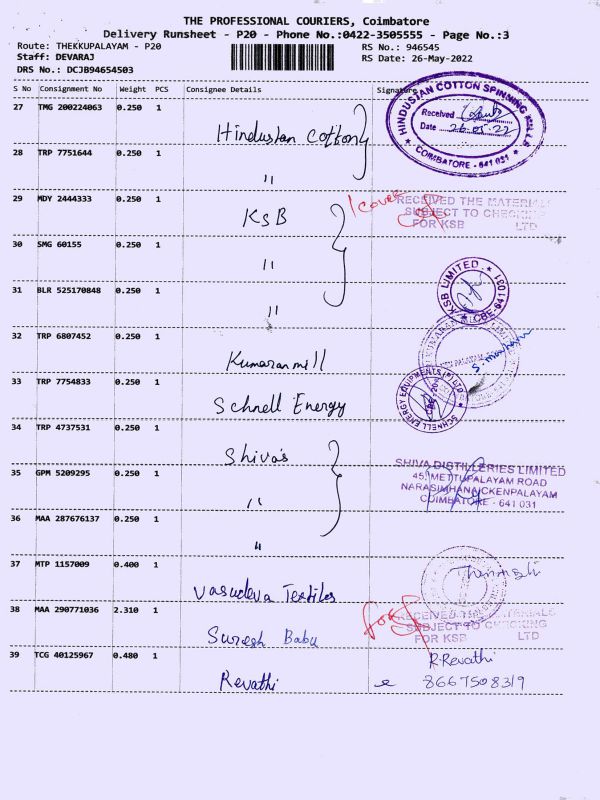 THE PROFESSIONAL COURIERS, Coimbatore
Delivery Runsheet - P20 - Phone No.:0422-3505555 - Page No.:3
Route: THEKKUPALAYAM - P20
RS No.: 946545
Staff: DEVARAJ
RS Date: 26-May-2022
DRS No.: DCJB94654503
S No Consignment No Weight PCS Consignee Details Signature
27 TMG 200224063 0.250 1 Hindustan Cotton
HINDUSTAN COTTON SPINNING MILLS
Received
Date 26.05.22
COIMBATORE - 641 031
28 TRP 7751644 0.250 1 "
29 MDY 2444333 0.250 1 KSB
1 Cover
RECEIVED THE MATERIALS
SUBJECT TO CHECKING
FOR KSB LTD
30 SMG 60155 0.250 1 "
31 BLR 525170848 0.250 1 "
KSB LIMITED
CBE-641 031
32 TRP 6807452 0.250 1 Kumaran mill
33 TRP 7754833 0.250 1 Schnell Energy
SCHNELL ENERGY EQUIPMENTS (P) LTD
34 TRP 4737531 0.250 1 Shiva's
SHIVA DISTILLERIES LIMITED
45, METTUPALAYAM ROAD
NARASIMHANAICKENPALAYAM
COIMBATORE - 641 031
35 GPM 5209295 0.250 1 "
36 MAA 287676137 0.250 1 "
37 MTP 1157009 0.400 1 Vasudeva Textiles
38 MAA 290771036 2.310 1 Suresh Babu
RECEIVED THE MATERIALS
SUBJECT TO CHECKING
FOR KSB LTD
39 TCG 40125967 0.480 1 Revathi
R.Revathi
8667508319